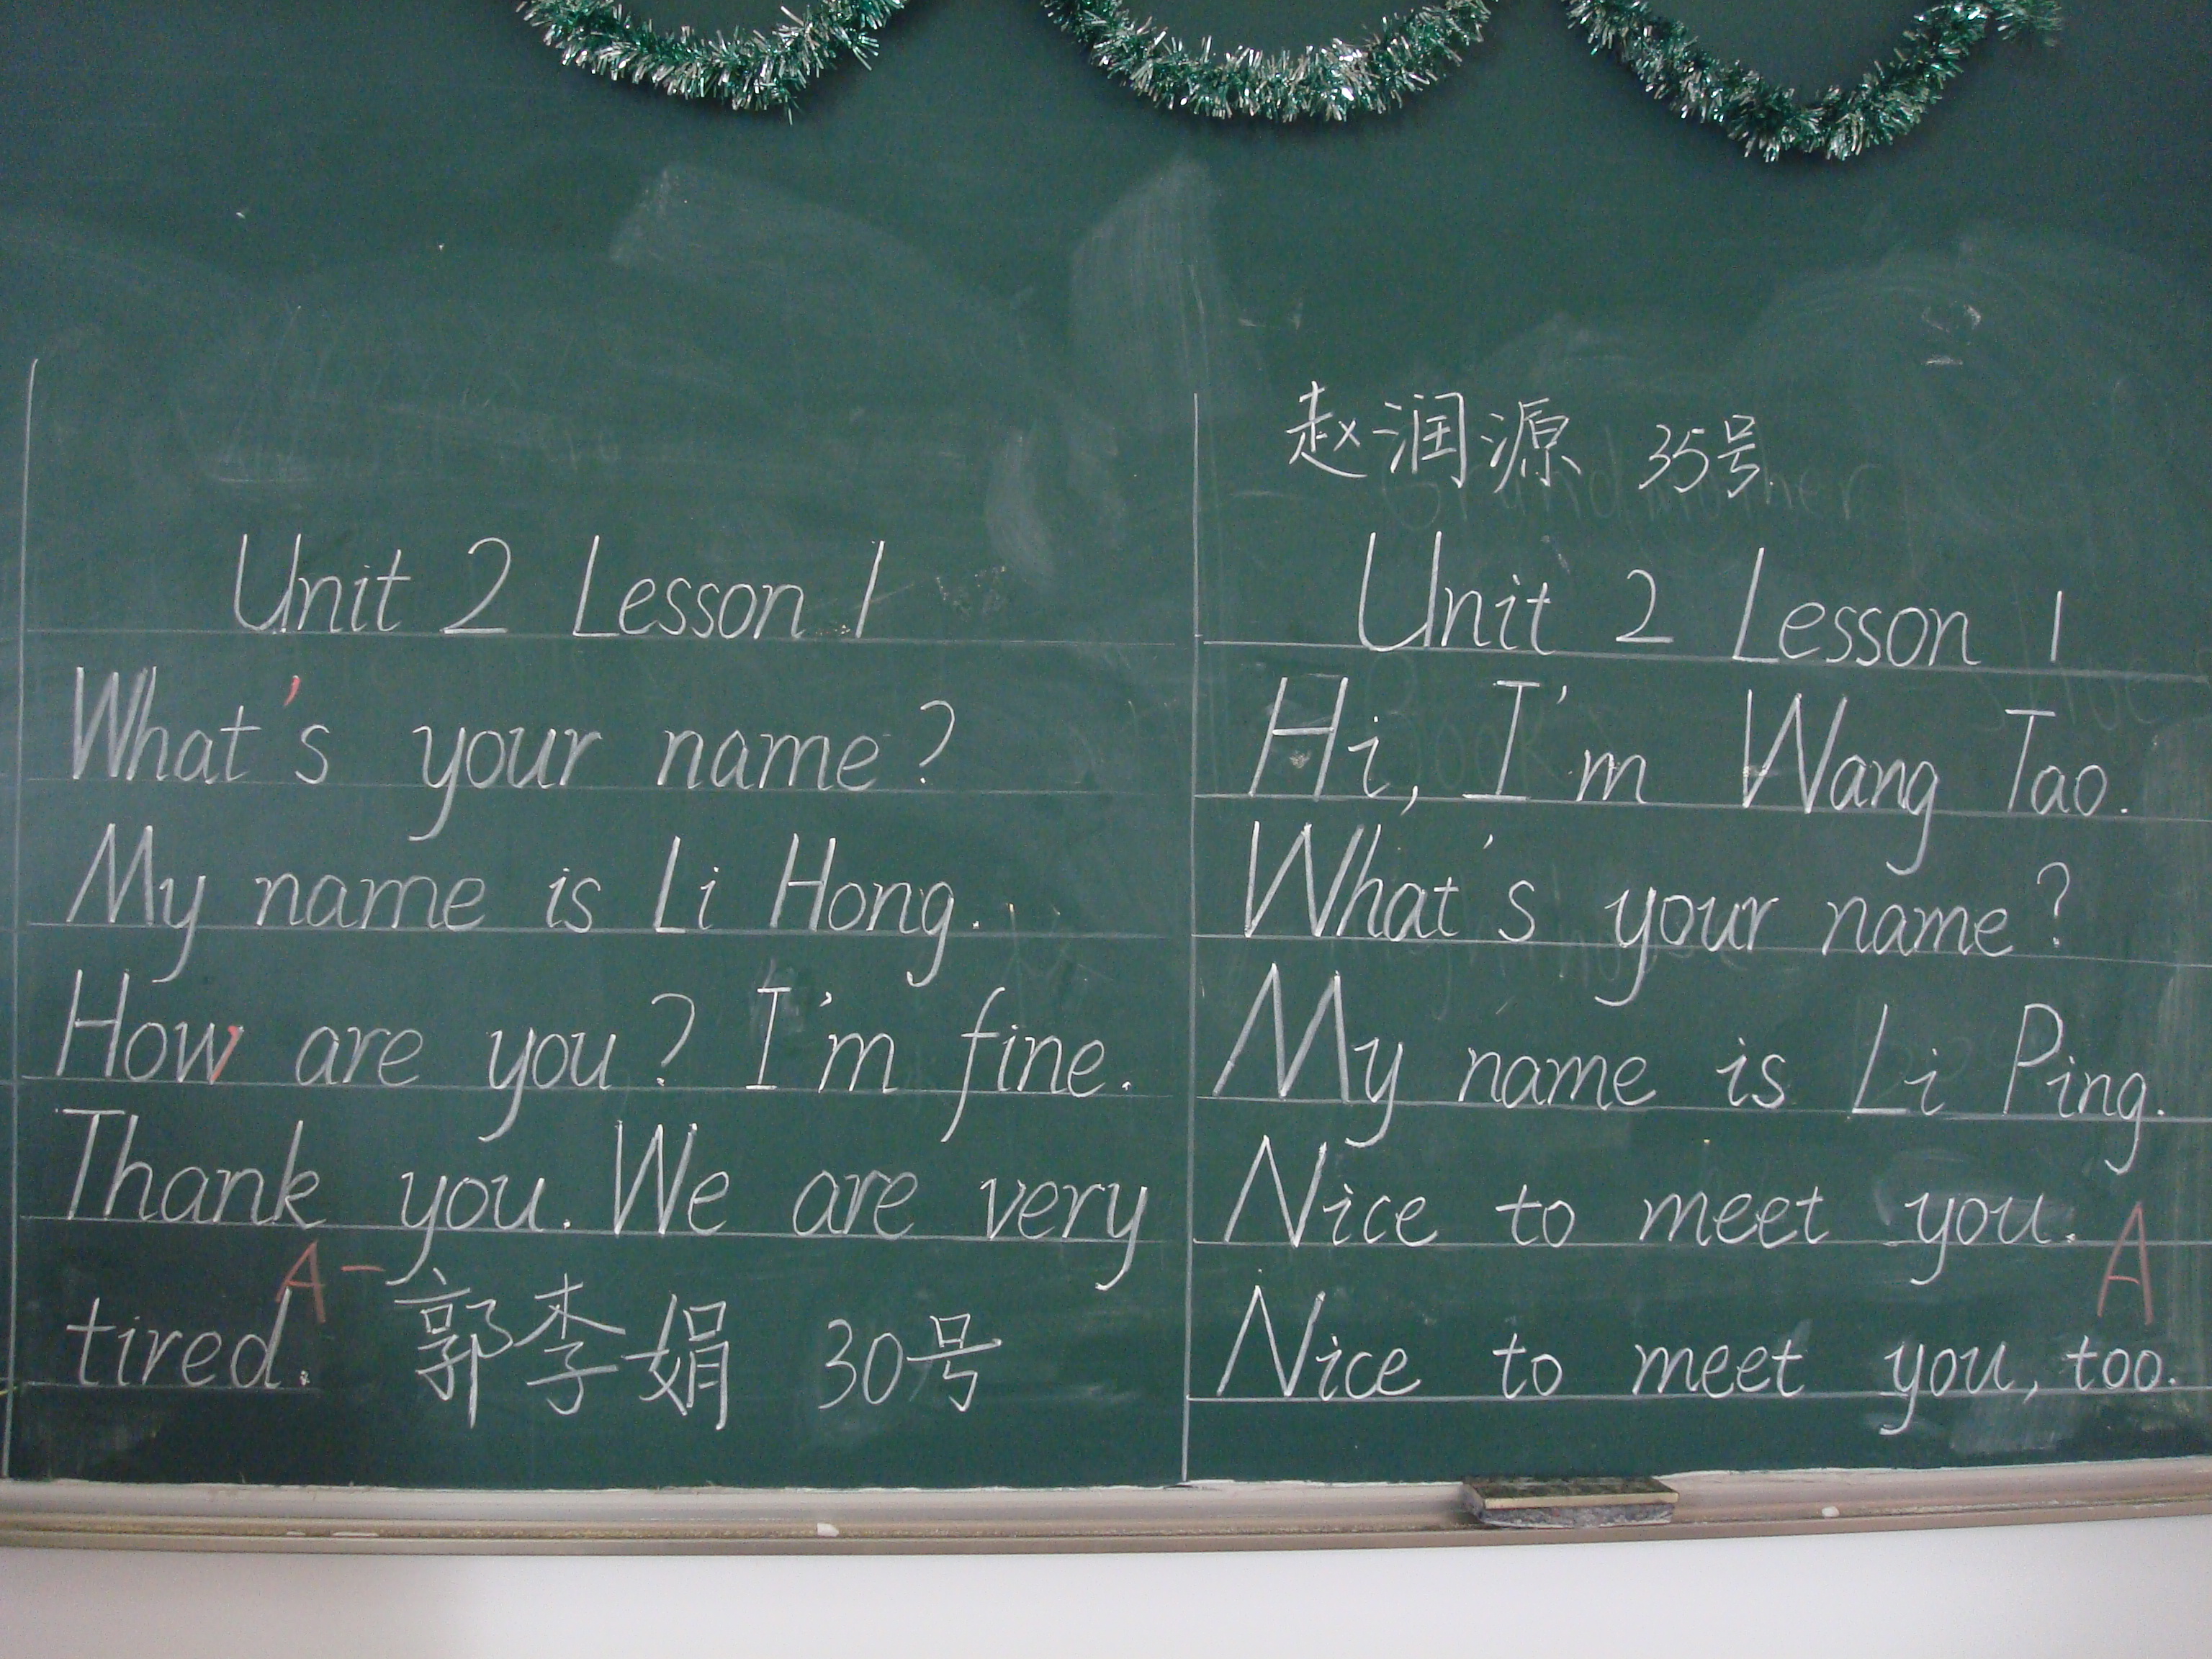 Unit 2 Lesson 1
What's your name?
My name is Li Hong.
How are you? I'm fine.
Thank you. We are very
tired. A- 郭李娟 30号
赵润源 35号
Unit 2 Lesson 1
Hi, I'm Wang Tao.
What's your name?
My name is Li Ping.
Nice to meet you.
A
Nice to meet you, too.
Grandmother